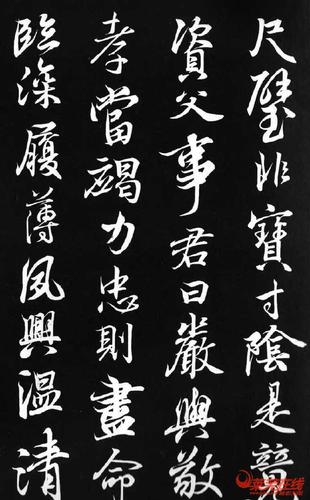 尺璧非寶寸陰是競
資父事君曰嚴與敬
孝當竭力忠則盡命
臨深履薄夙興温清